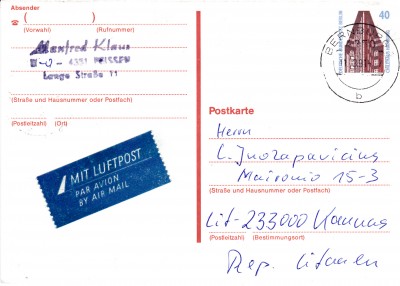 Absender
☎ ( )
(Vorwahl) (Rufnummer)
Manfred Klaus
Lange Straße 11
(Straße und Hausnummer oder Postfach)
(Postleitzahl) (Ort)
MIT LUFTPOST
PAR AVION
BY AIR MAIL
40
b
Postkarte
Herrn
L. Juozapavicius
Maironio 15-3
(Straße und Hausnummer oder Postfach)
Lit-233000 Kaunas
(Postleitzahl) (Bestimmungsort)
Rep. Litauen